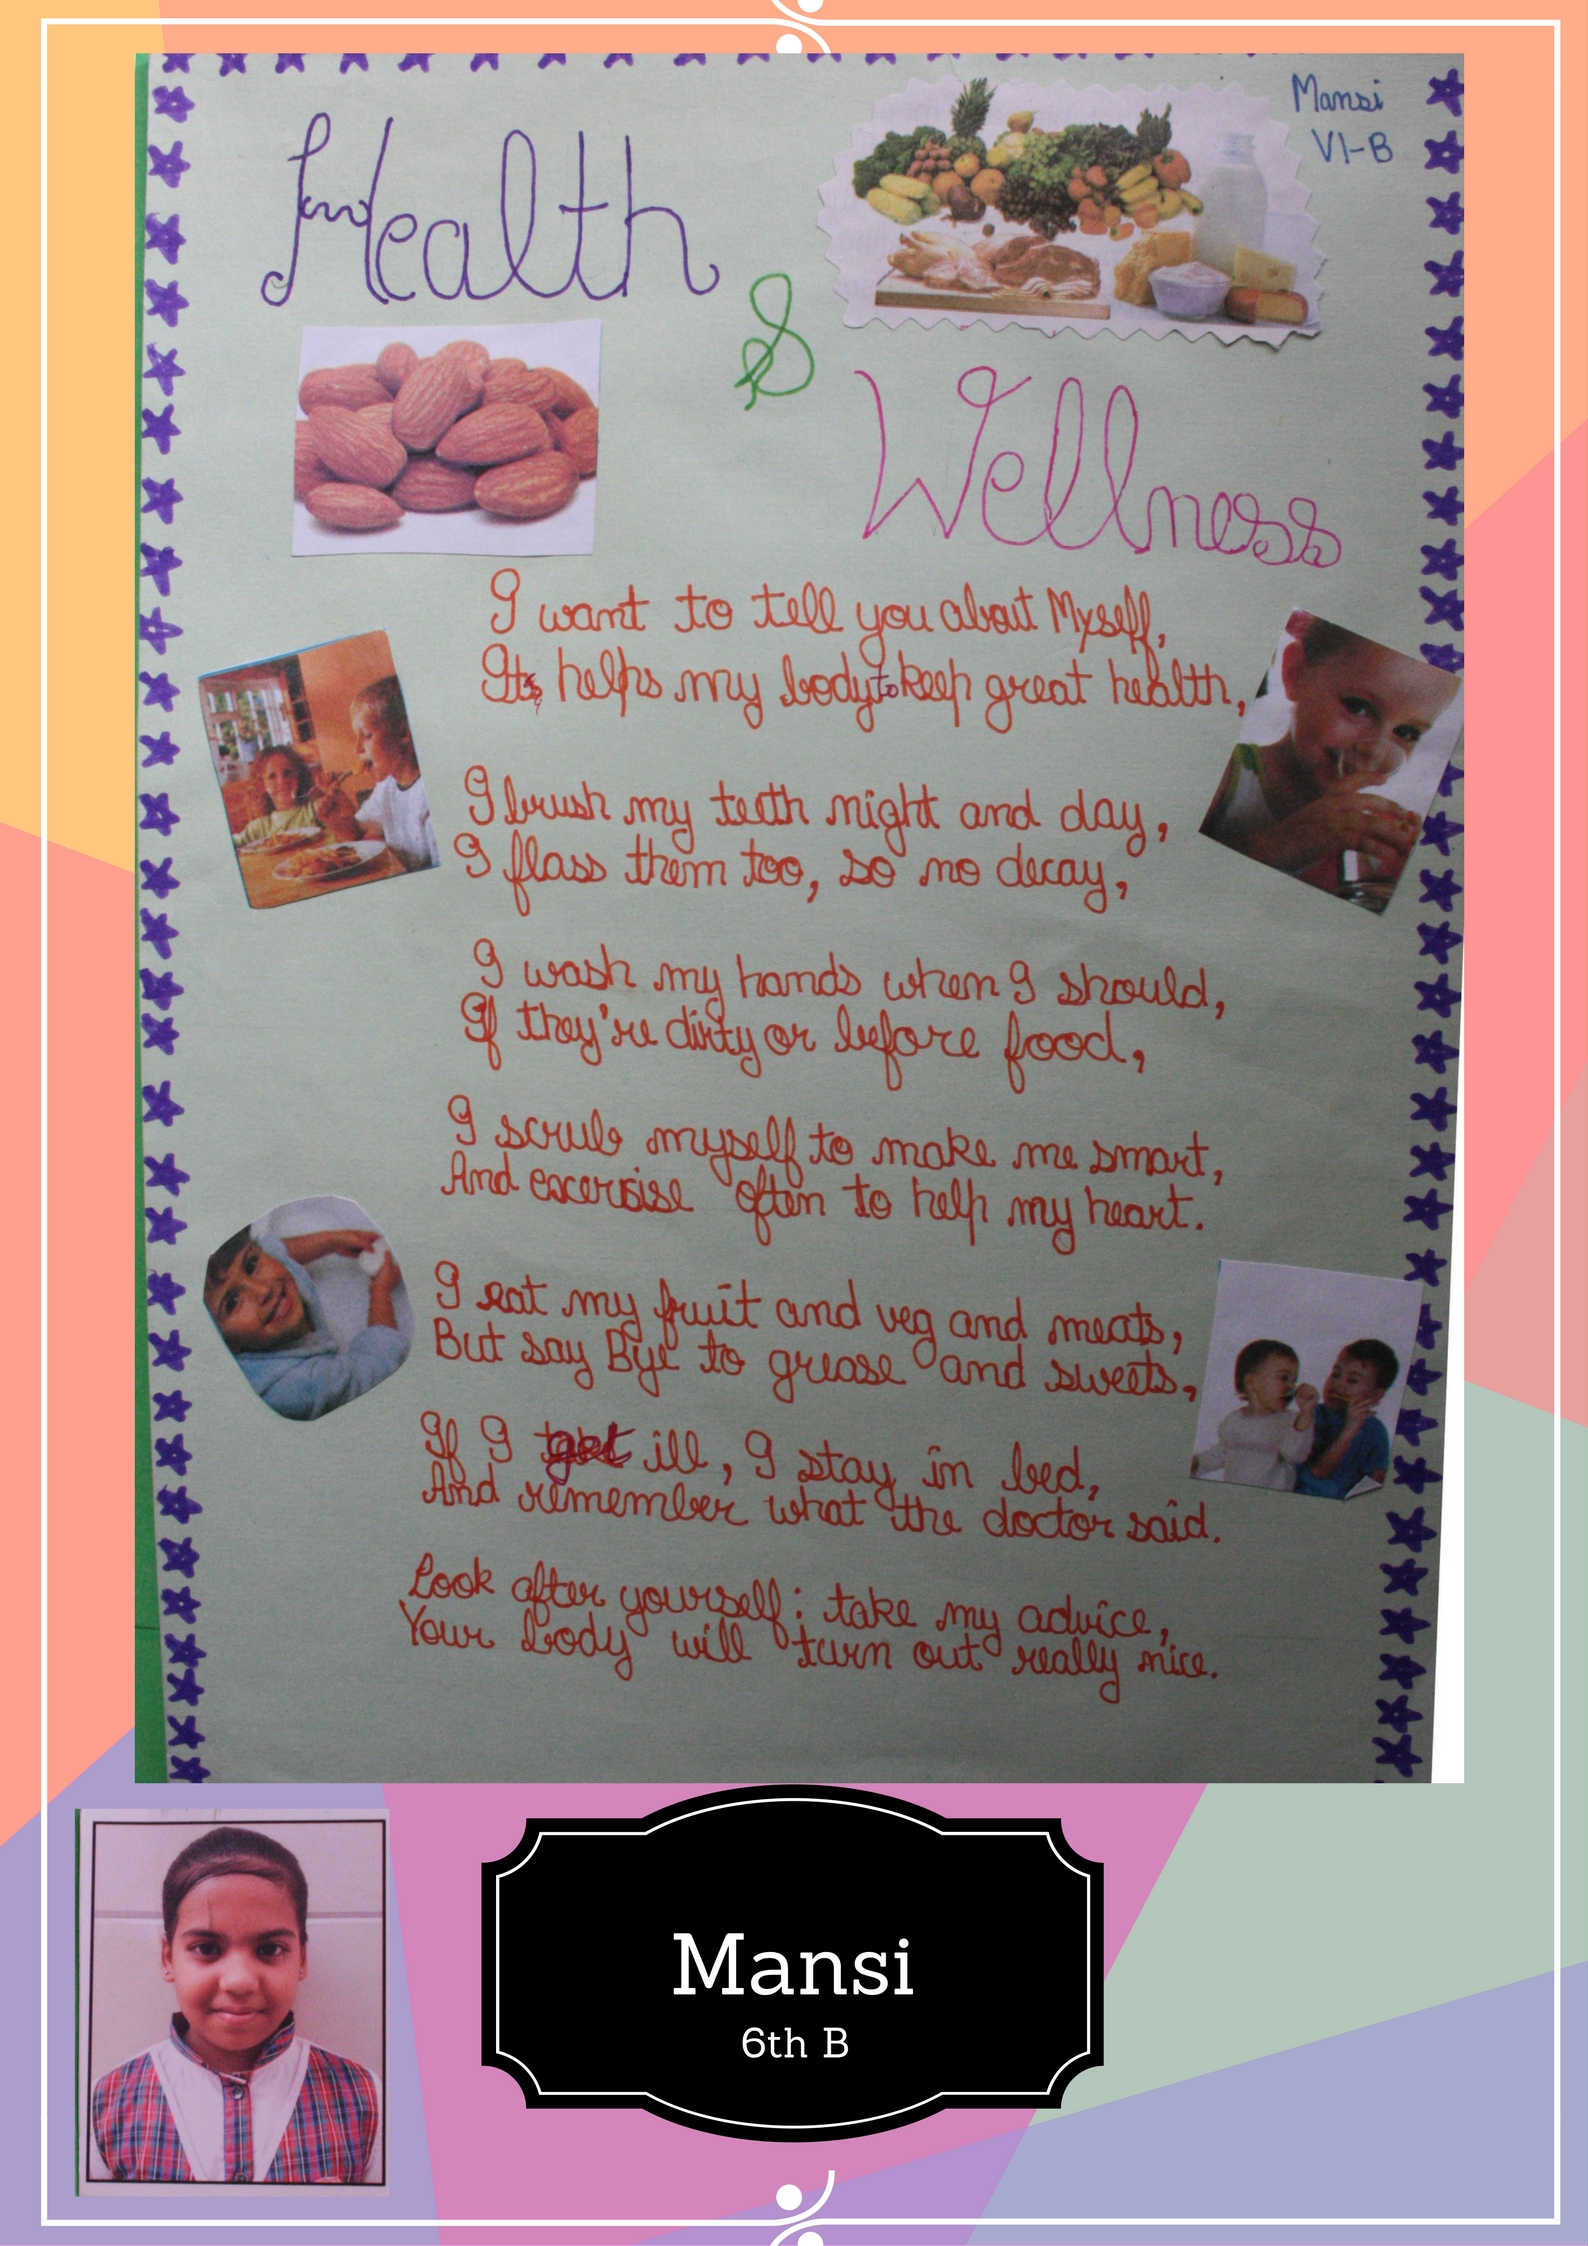 Mansi
VI-B
Health
&
Wellness
I want to tell you about Myself,
Its, helps my body to keep great health,
I brush my teeth night and day,
I flass them too, so no decay,
I wash my hands when I should,
If they're dirty or before food,
I scrub myself to make me smart,
And excersise often to help my heart.
I eat my fruit and veg and meats,
But say Bye to grease and sweets,
If I get ill, I stay in bed,
And remember what the doctor said.
Look after yourself; take my advice,
Your body will turn out really nice.
Mansi
6th B